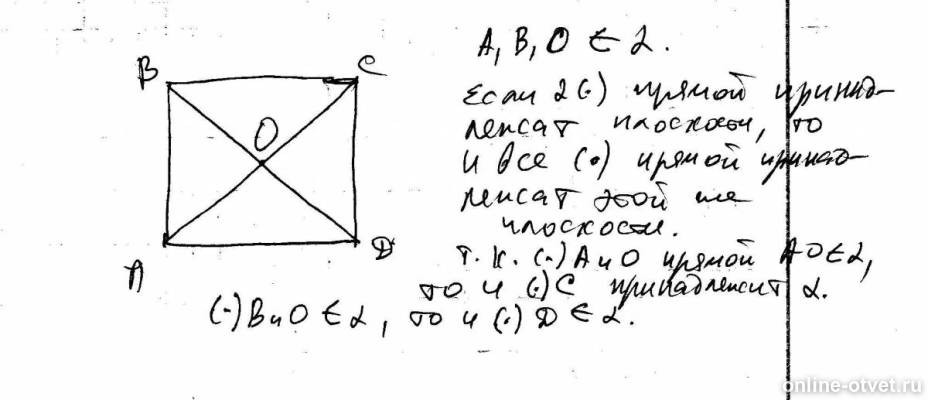 B
C
O
A
D
A, B, O ∈ α.
Если 2(·) прямой принад-
лежат плоскости, то
и все (·) прямой принад-
лежат этой же
плоскости.
т. к. (·) A и O прямой AO ∈ α,
то и (·) C принадлежит α.
(·) B и O ∈ α, то и (·) D ∈ α.
online-otvet.ru